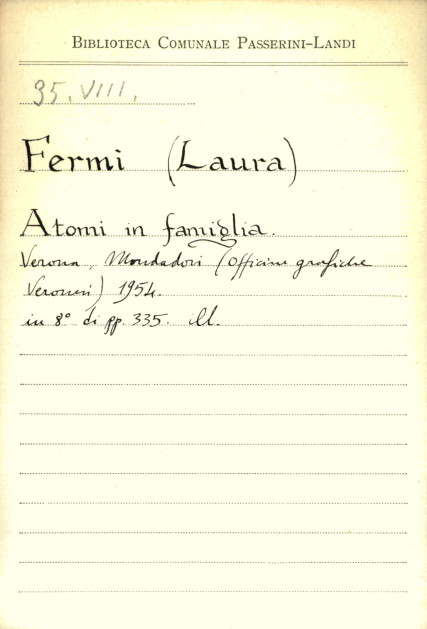 BIBLIOTECA COMUNALE PASSERINI-LANDI
35. VIII.
Fermi (Laura)
Atomi in famiglia.
Verona, Mondadori (Officine grafiche
Veronesi) 1954.
in 8° di pp. 335. ill.